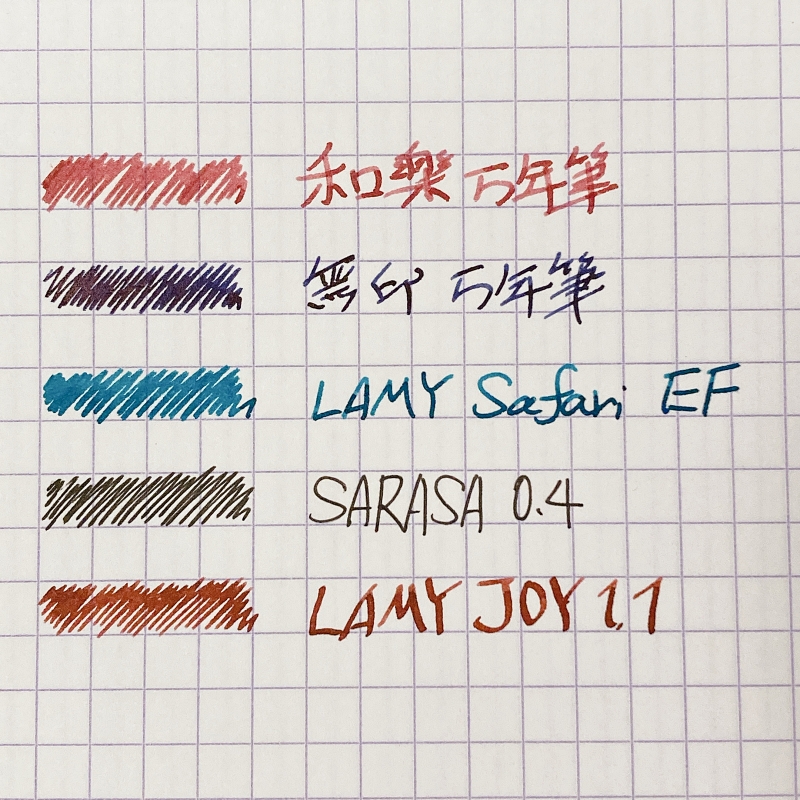 和樂 万年筆
無印 万年筆
LAMY Safari EF
SARASA 0.4
LAMY JOY 1.1